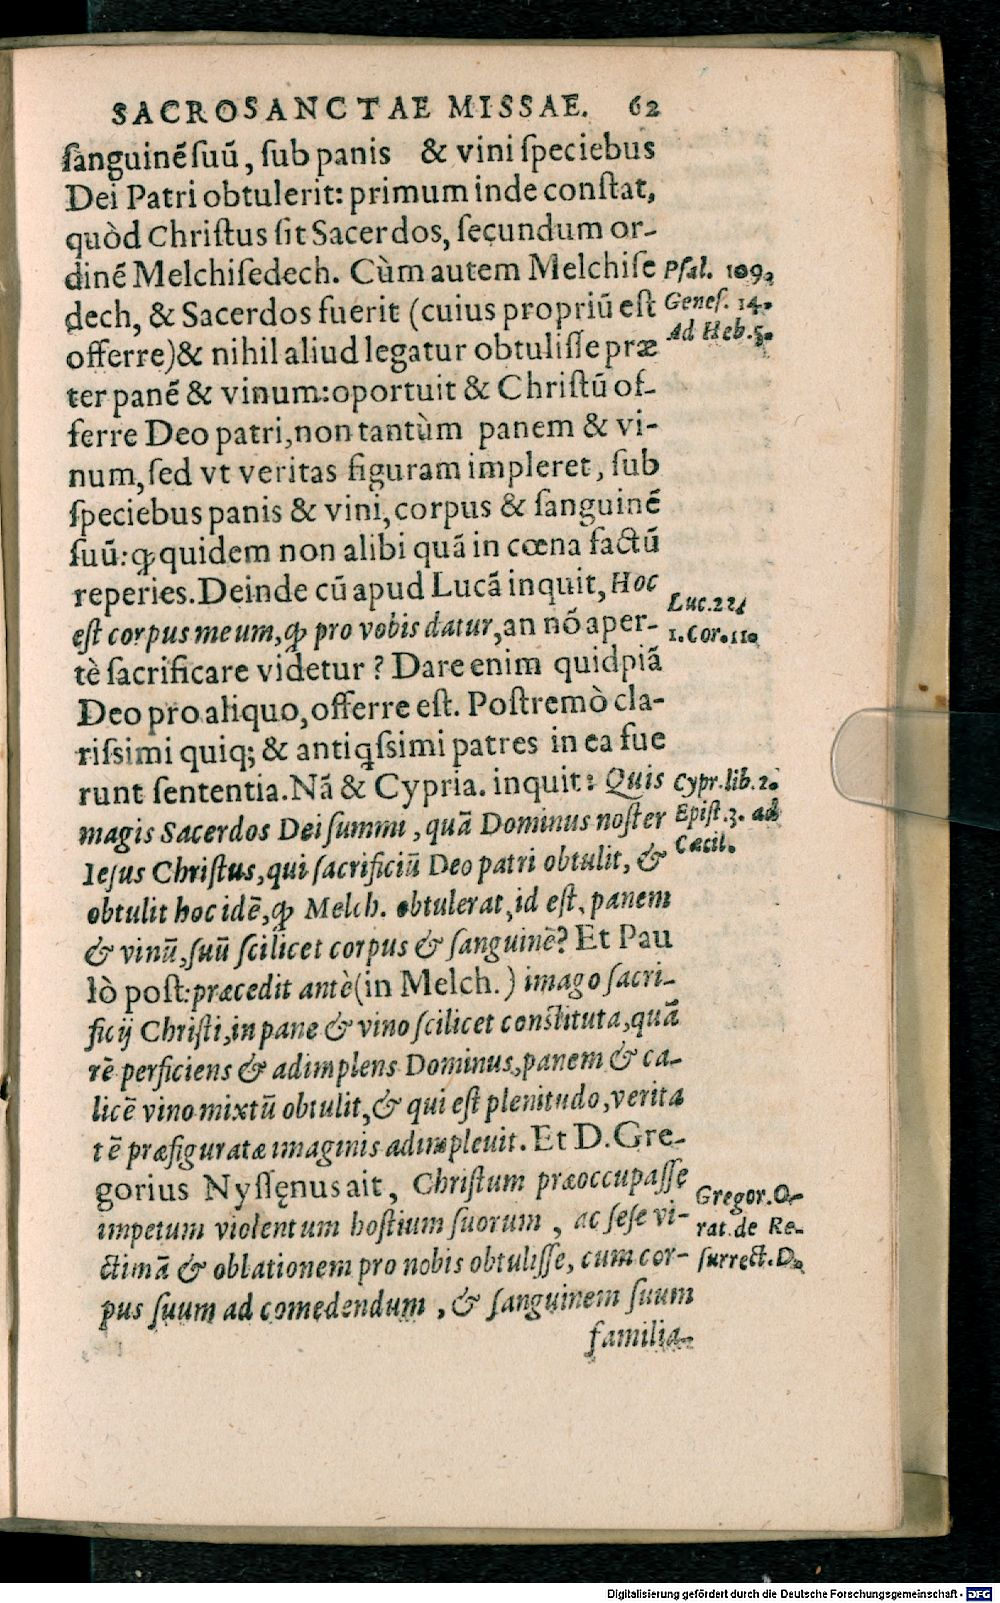 SACROSANCTAE MISSAE. 62
ſanguinẽ ſuũ, ſub panis & vini ſpeciebus
Dei Patri obtulerit: primum inde conſtat,
quòd Chriſtus ſit Sacerdos, ſecundum or-
dinẽ Melchiſedech. Cùm autem Melchiſe
Pſal. 109.
dech, & Sacerdos fuerit (cuius propriũ eſt
Geneſ. 14.
offerre)& nihil aliud legatur obtuliſſe præ
Ad Heb.5.
ter panẽ & vinum:oportuit & Chriſtũ of-
ferre Deo patri,non tantùm panem & vi-
num,ſed vt veritas figuram impleret, ſub
ſpeciebus panis & vini, corpus & ſanguinẽ
ſuũ:ꝙ quidem non alibi quã in cœna factũ
reperies. Deinde cũ apud Lucã inquit, Hoc
Luc.22.
eſt corpus meum,ꝙ pro vobis datur,an nõ aper-
1.Cor.11.
tè ſacrificare videtur ? Dare enim quidpiã
Deo pro aliquo,offerre eſt. Poſtremò cla-
riſsimi quiq; & antiqſsimi patres in ea fue
runt ſententia. Nã & Cypria. inquit: Quis
Cypr.lib.2.
magis Sacerdos Dei ſummi, quã Dominus noſter
Epiſt.3. ad
Ieſus Chriſtus,qui ſacrificiũ Deo patri obtulit, &
Cæcil.
obtulit hoc idẽ,ꝙ Melch. obtulerat,id eſt, panem
& vinũ,ſuũ ſcilicet corpus & ſanguinẽ? Et Pau
lò poſt:præcedit antè(in Melch.) imago ſacri-
ficij Chriſti,in pane & vino ſcilicet conſtituta,quã
rẽ perficiens & adimplens Dominus,panem & ca-
licẽ vino mixtũ obtulit,& qui eſt plenitudo,verita
tẽ præfiguratæ imaginis adimpleuit. Et D. Gre-
gorius Nyſſęnus ait, Chriſtum præoccupaſſe
Gregor.O-
impetum violentum hoſtium ſuorum, ac ſeſe vi-
rat.de Re-
ctimã & oblationem pro nobis obtuliſſe, cum cor-
ſurrect.D.
pus ſuum ad comedendum, & ſanguinem ſuum
familia-
Digitalisierung gefördert durch die Deutsche Forschungsgemeinschaft - DFG